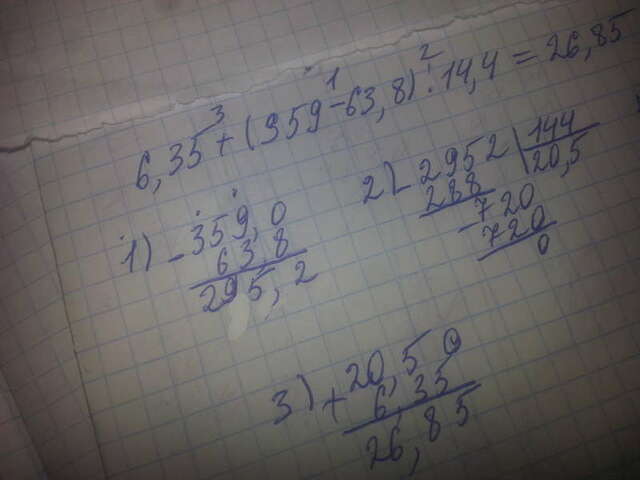 6,35 + (359 - 63,8) : 14,4 = 26,85
3 1 2
1) - 359,0
638
295,2
2) - 2952 | 144
288 20,5
- 720
720
0
3) + 20,50
6,35
26,85